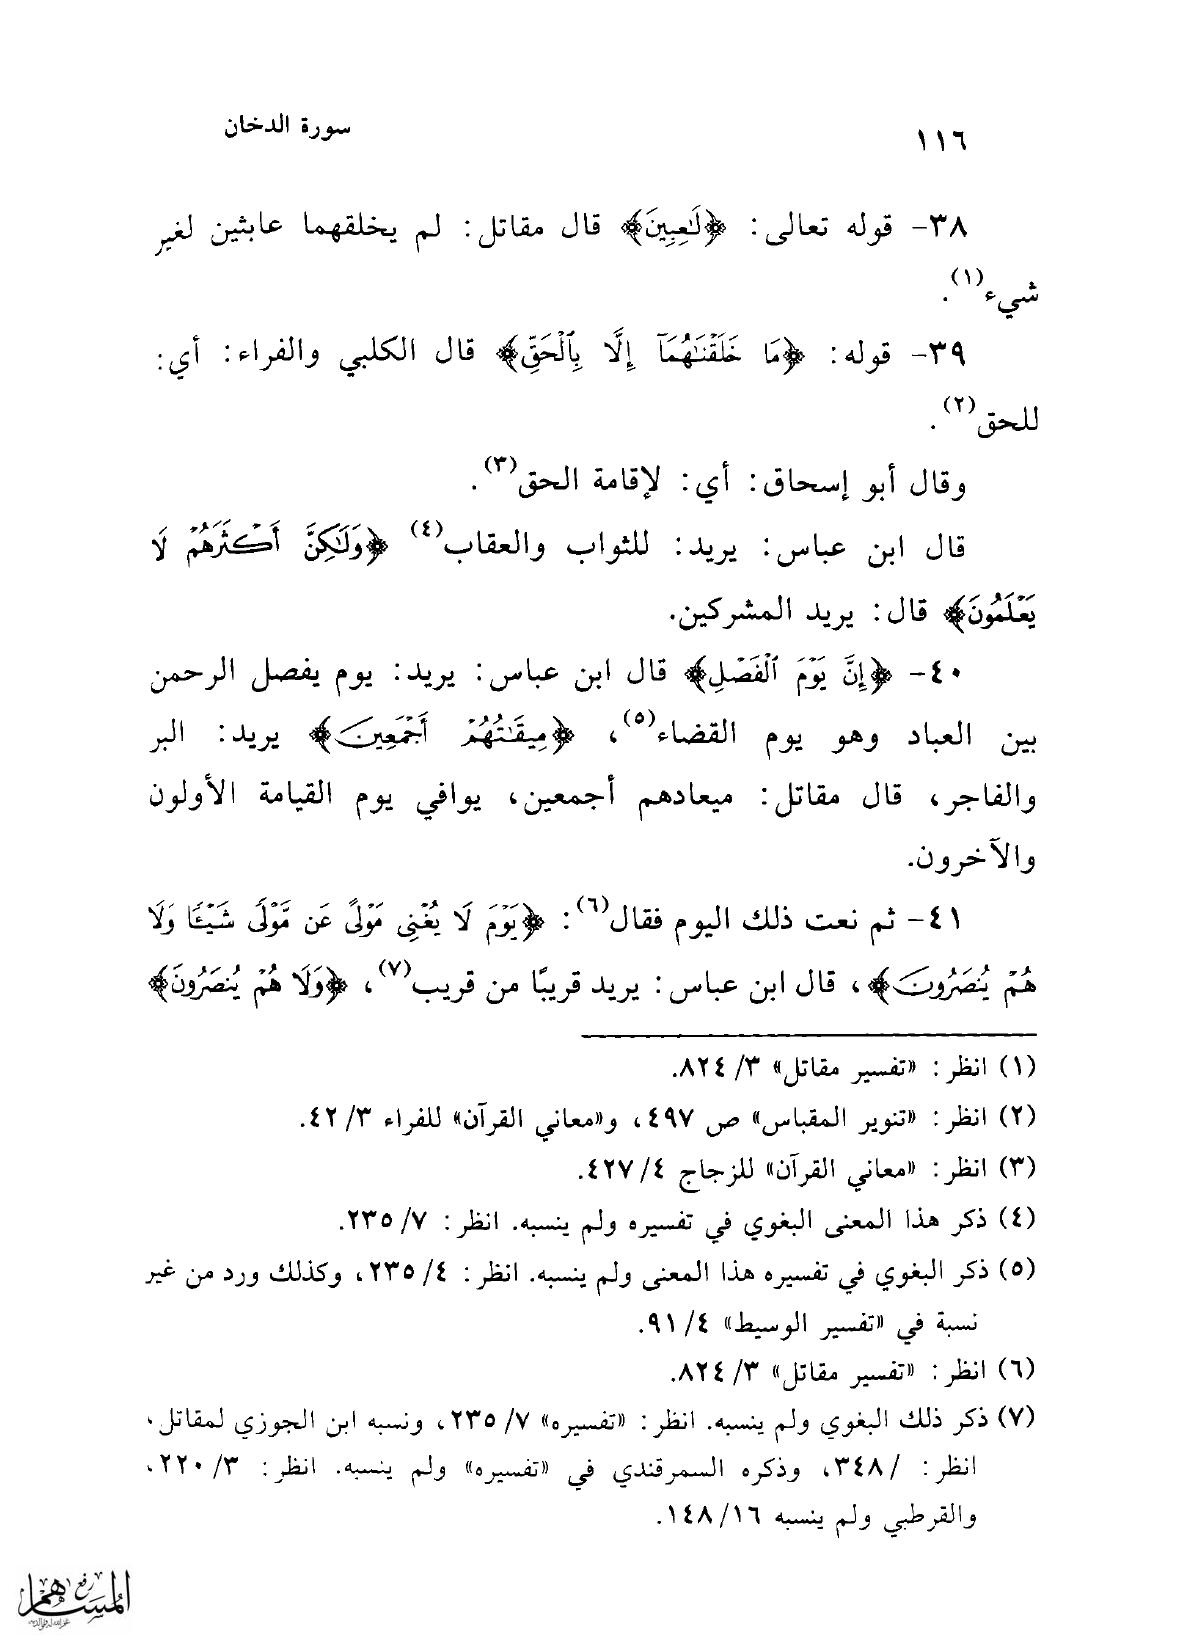 ١١٦
سورة الدخان
٣٨- قوله تعالى: ﴿لَٰعِبِينَ﴾ قال مقاتل: لم يخلقهما عابثين لغير
شيء(١).
٣٩- قوله: ﴿مَا خَلَقْنَٰهُمَآ إِلَّا بِٱلْحَقِّ﴾ قال الكلبي والفراء: أي:
للحق(٢).
وقال أبو إسحاق: أي: لإقامة الحق(٣).
قال ابن عباس: يريد: للثواب والعقاب(٤) ﴿وَلَٰكِنَّ أَكْثَرَهُمْ لَا
يَعْلَمُونَ﴾ قال: يريد المشركين.
٤٠- ﴿إِنَّ يَوْمَ ٱلْفَصْلِ﴾ قال ابن عباس: يريد: يوم يفصل الرحمن
بين العباد وهو يوم القضاء(٥)، ﴿مِيقَٰتُهُمْ أَجْمَعِينَ﴾ يريد: البر
والفاجر، قال مقاتل: ميعادهم أجمعين، يوافي يوم القيامة الأولون
والآخرون.
٤١- ثم نعت ذلك اليوم فقال(٦): ﴿يَوْمَ لَا يُغْنِى مَوْلًى عَن مَّوْلًى شَيْـًٔا وَلَا
هُمْ يُنصَرُونَ﴾، قال ابن عباس: يريد قريبًا من قريب(٧)، ﴿وَلَا هُمْ يُنصَرُونَ﴾
(١) انظر: «تفسير مقاتل» ٣/ ٨٢٤.
(٢) انظر: «تنوير المقباس» ص ٤٩٧، و«معاني القرآن» للفراء ٣/ ٤٢.
(٣) انظر: «معاني القرآن» للزجاج ٤/ ٤٢٧.
(٤) ذكر هذا المعنى البغوي في تفسيره ولم ينسبه. انظر: ٧/ ٢٣٥.
(٥) ذكر البغوي في تفسيره هذا المعنى ولم ينسبه. انظر: ٤/ ٢٣٥، وكذلك ورد من غير
نسبة في «تفسير الوسيط» ٤/ ٩١.
(٦) انظر: «تفسير مقاتل» ٣/ ٨٢٤.
(٧) ذكر ذلك البغوي ولم ينسبه. انظر: «تفسيره» ٧/ ٢٣٥، ونسبه ابن الجوزي لمقاتل،
انظر: /٣٤٨، وذكره السمرقندي في «تفسيره» ولم ينسبه. انظر: ٣/ ٢٢٠،
والقرطبي ولم ينسبه ١٦/ ١٤٨.